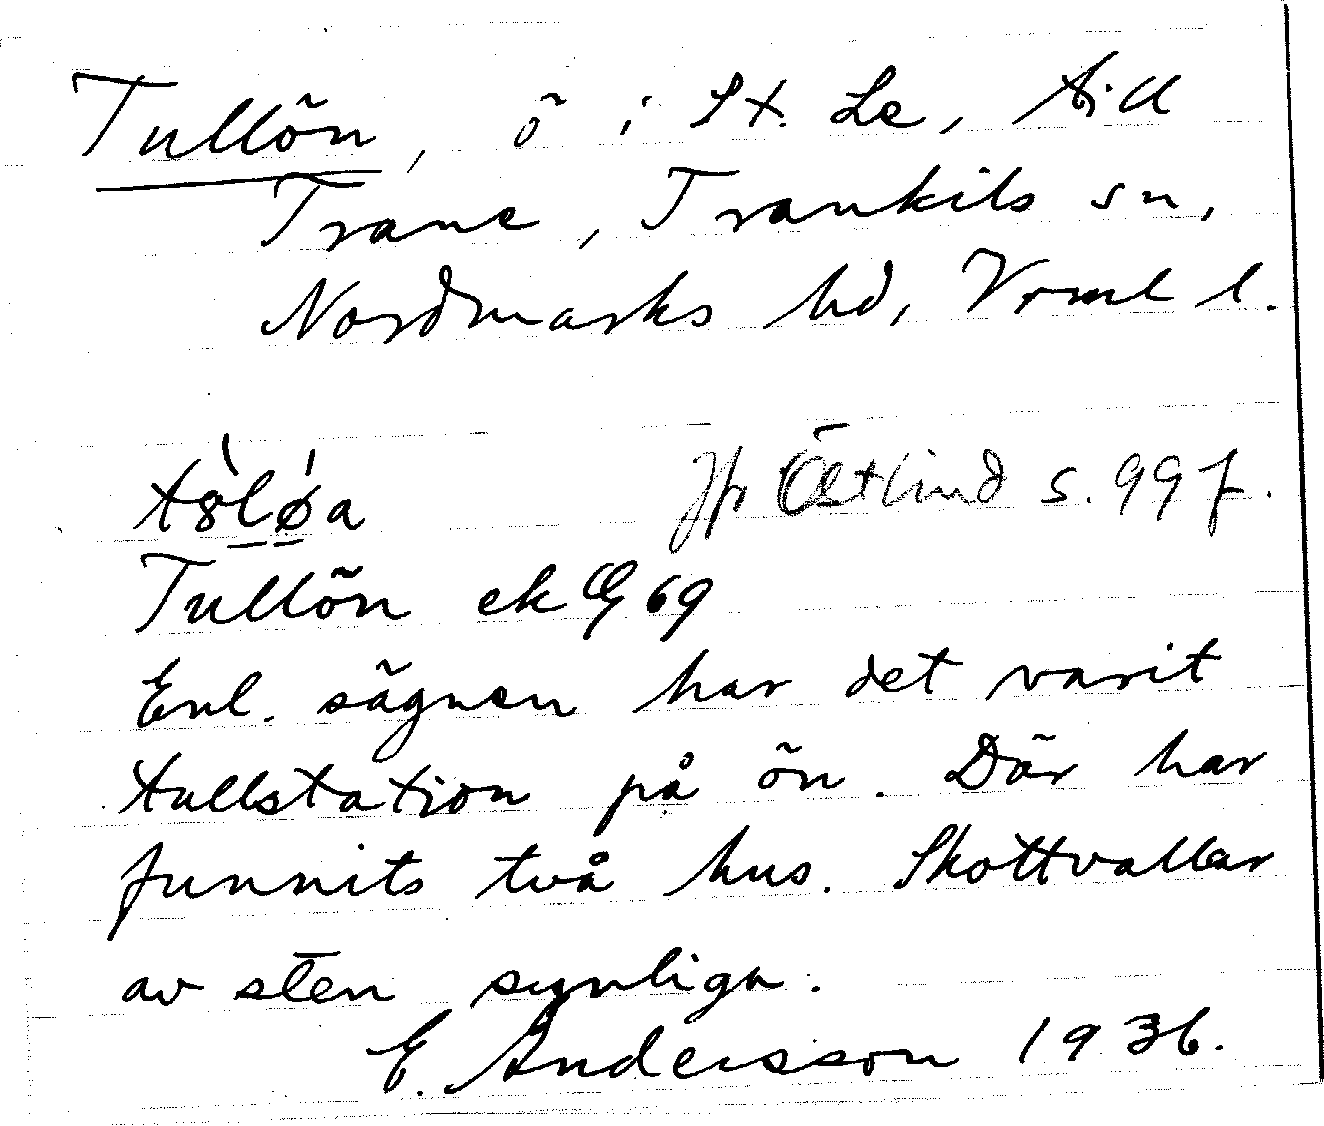 Tullön, ö i St. Le, till
Trane, Trankils sn,
Nordmarks hd, Vrml l.
Jfr Östlind s. 99 f.
Tullön ek 69
Enl. sägnen har det varit
tullstation på ön. Där har
funnits två hus. Skottvallar
av sten synliga.
E. Andersson 1936.